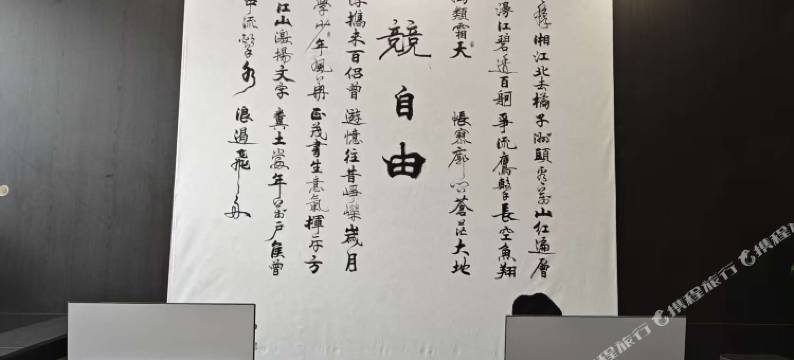 湘江北去橘子洲頭看萬山紅遍層
江碧透百舸爭流鷹擊長空魚翔
類霜天 悵寥廓問蒼茫大地
競自由
攜來百侶曾遊憶往昔崢嶸歲月
學少年風華正茂書生意氣揮斥方
江山激揚文字糞土當年萬戶侯曾
中流擊水浪遏飛舟
携程旅行
携程旅行
携程旅行